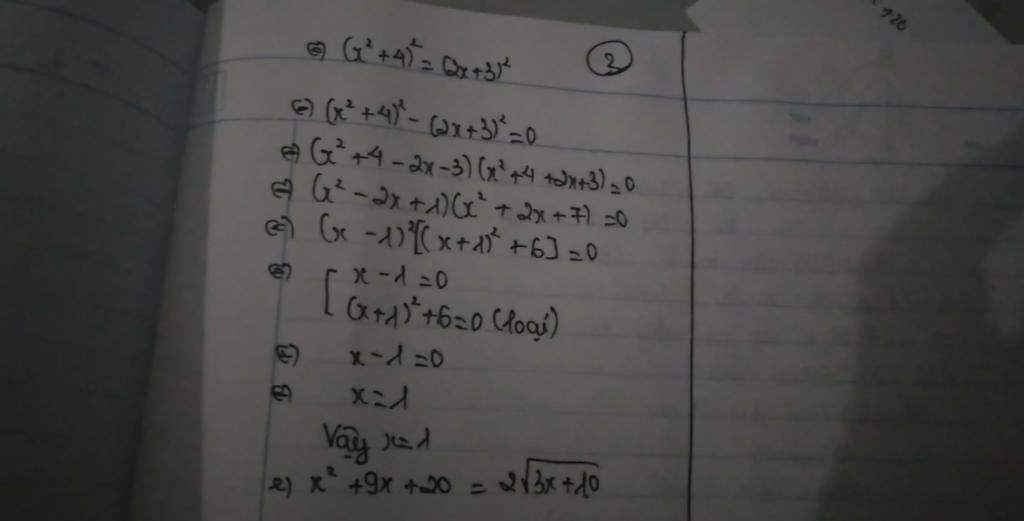 ⇔ (x² + 4)² = (2x + 3)² ②
⇔ (x² + 4)² - (2x + 3)² = 0
⇔ (x² + 4 - 2x - 3)(x² + 4 + 2x + 3) = 0
⇔ (x² - 2x + 1)(x² + 2x + 7) = 0
⇔ (x - 1)²[(x + 1)² + 6] = 0
⇔ [ x - 1 = 0
(x + 1)² + 6 = 0 (loại)
⇔ x - 1 = 0
⇔ x = 1
Vậy x = 1
e) x² + 9x + 20 = 2√(3x + 10)